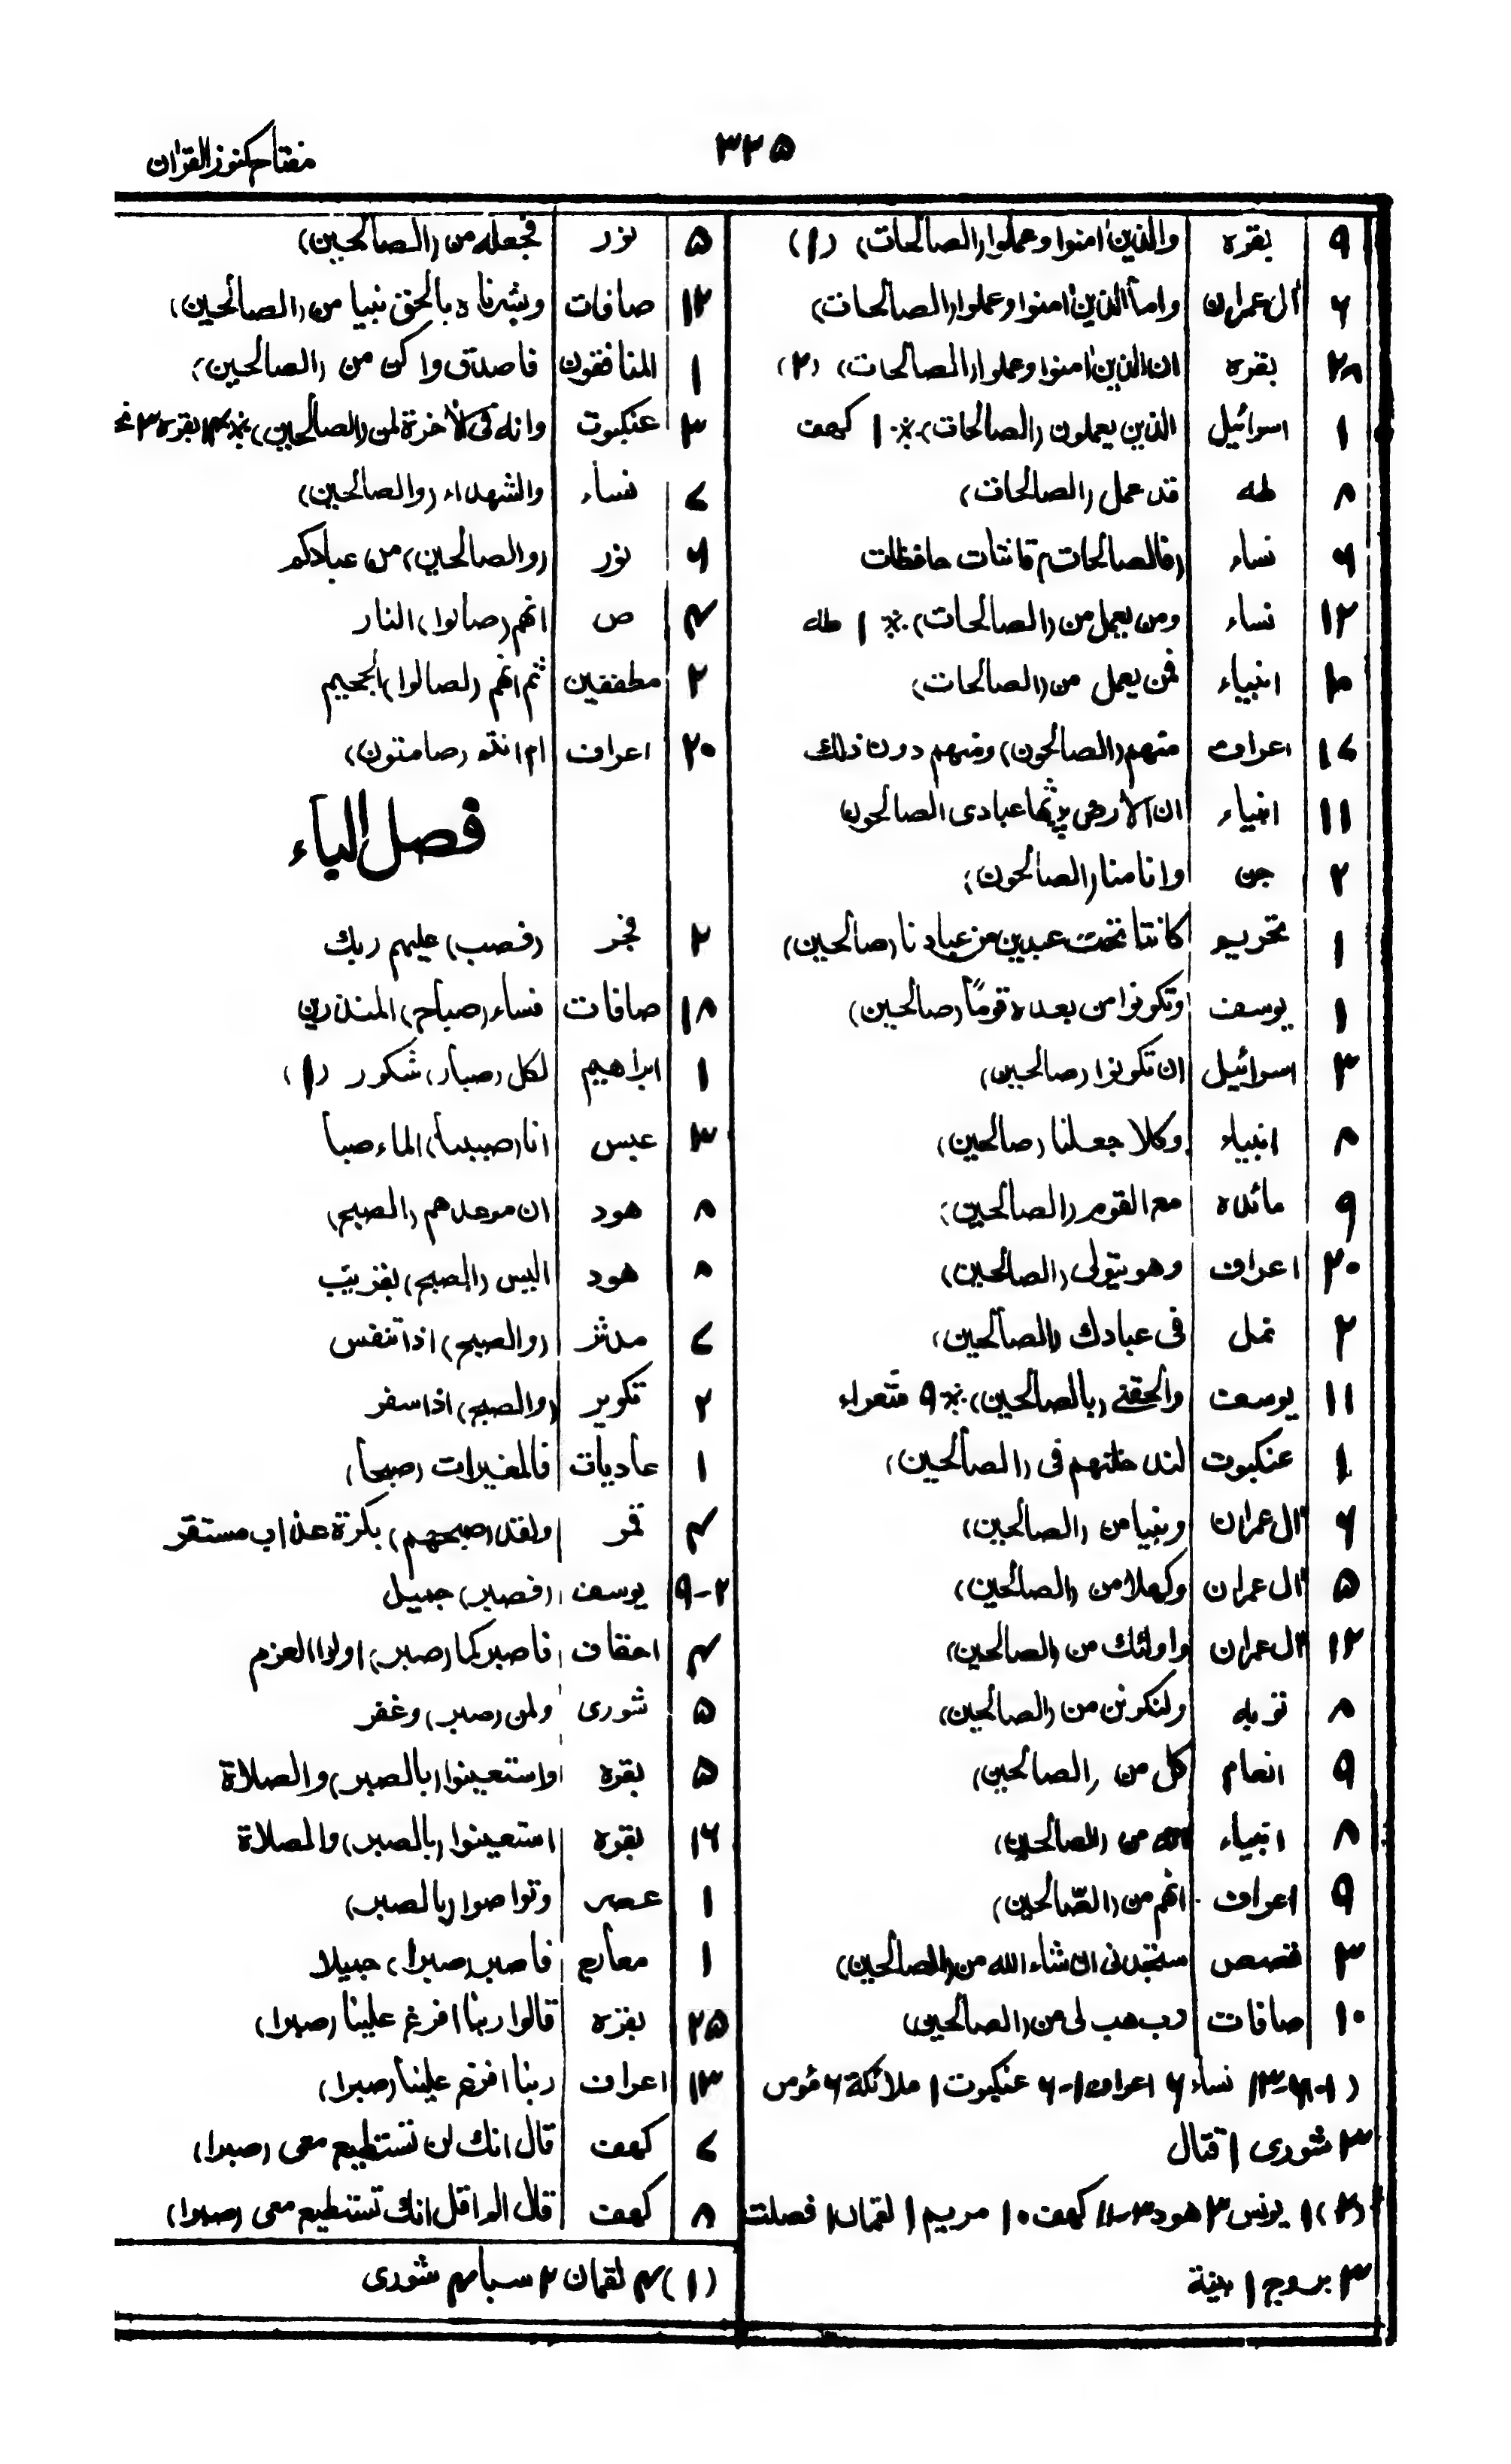 ٣٢٥
مفتاح كنوز القران
٩ بقره والذين امنوا وعملوا (الصالحات) (١)
٦ ال عمران واما الذين امنوا وعملوا (الصالحات)
٣٨ بقره ان الذين امنوا وعملوا (الصالحات) (٢)
١ اسرائيل الذين يعملون (الصالحات) ※ ١ كهف
٨ طه قد عمل (الصالحات)
٦ نساء (فالصالحات) قانتات حافظات
١٢ نساء ومن يعمل من (الصالحات) ※ ١ طه
انبياء فمن يعمل من (الصالحات)
١٧ اعراف منهم (الصالحون) ومنهم دون ذلك
١١ انبياء ان الارض يرثها عبادى الصالحون
٢ جن وانا منا (الصالحون)
١ تحريم كانتا تحت عبدين من عبادنا (صالحين)
١ يوسف وتكونوا من بعده قوماً (صالحين)
٣ اسرائيل ان تكونوا (صالحين)
٨ انبياء وكلا جعلنا (صالحين)
٩ مائده مع القوم (الصالحين)
٢٠ اعراف وهو يتولى (الصالحين)
٢ نمل فى عبادك (الصالحين)
١١ يوسف والحقنى (بالصالحين) ※ ٩ شعراء
١ عنكبوت لندخلنهم فى (الصالحين)
٦ ال عمران ونبيا من (الصالحين)
٥ ال عمران وكهلا من (الصالحين)
١٢ ال عمران واولئك من (الصالحين)
٨ توبه ولنكونن من (الصالحين)
٩ انعام كل من (الصالحين)
٨ انبياء انه من (الصالحين)
٩ اعراف انهم من (الصّالحين)
٣ قصص ستجدنى ان شاء الله من (الصالحين)
١٠ صافات رب هب لى من (الصالحين)
نساء ٦ اعراف عنكبوت ١ ملائكة ٦ مؤمن
٣ شورى ١ قتال
(٢) ١ يونس ٣ هود كهف ١٠ مريم ١ لقمان ١ فصلت
٣ بروج ١ بينة
٥ نور فجعله من (الصالحين)
١٢ صافات وبشرناه بالحق نبيا من (الصالحين)
١ المنافقون فاصدق واكن من (الصالحين)
٣ عنكبوت وانه فى الاخرة لمن (الصالحين) ※ بقره ٣
٧ نساء والشهداء (والصالحين)
٦ نور (والصالحين) من عبادكم
٤ ص انهم (صالوا) النار
٢ مطففين ثم انهم (لصالوا) الجحيم
٢٠ اعراف ام انتم (صامتون)
فصل الباء
٢ فجر (فصب) عليهم ربك
١٨ صافات فساء (صباح) المنذرين
١ ابراهيم لكل (صبار) شكور (١)
٣ عبس انا (صببنا) الماء صبا
٨ هود ان موعدهم (الصبح)
٨ هود اليس (الصبح) بقريب
٧ مدثر (والصبح) اذا تنفس
٢ تكوير (والصبح) اذا سفر
١ عاديات فالمغيرات (صبحا)
٤ قمر ولقد (صبحهم) بكرة عذاب مستقر
٢-٩ يوسف (فصبر) جميل
٤ احقاف فاصبر كما (صبر) اولوا العزم
٥ شورى ولمن (صبر) وغفر
٥ بقره واستعينوا (بالصبر) والصلاة
١٦ بقره استعينوا (بالصبر) والصلاة
١ عصر وتواصوا (بالصبر)
١ معارج فاصبر (صبرا) جميلا
٢٥ بقره قالوا ربنا افرغ علينا (صبرا)
١٣ اعراف ربنا افرغ علينا (صبرا)
٧ كهف قال انك لن تستطيع معى (صبرا)
٨ كهف قال الم اقل انك تستطيع معى (صبرا)
(١) ٤ لقمان ٢ سبا ٤ شورى